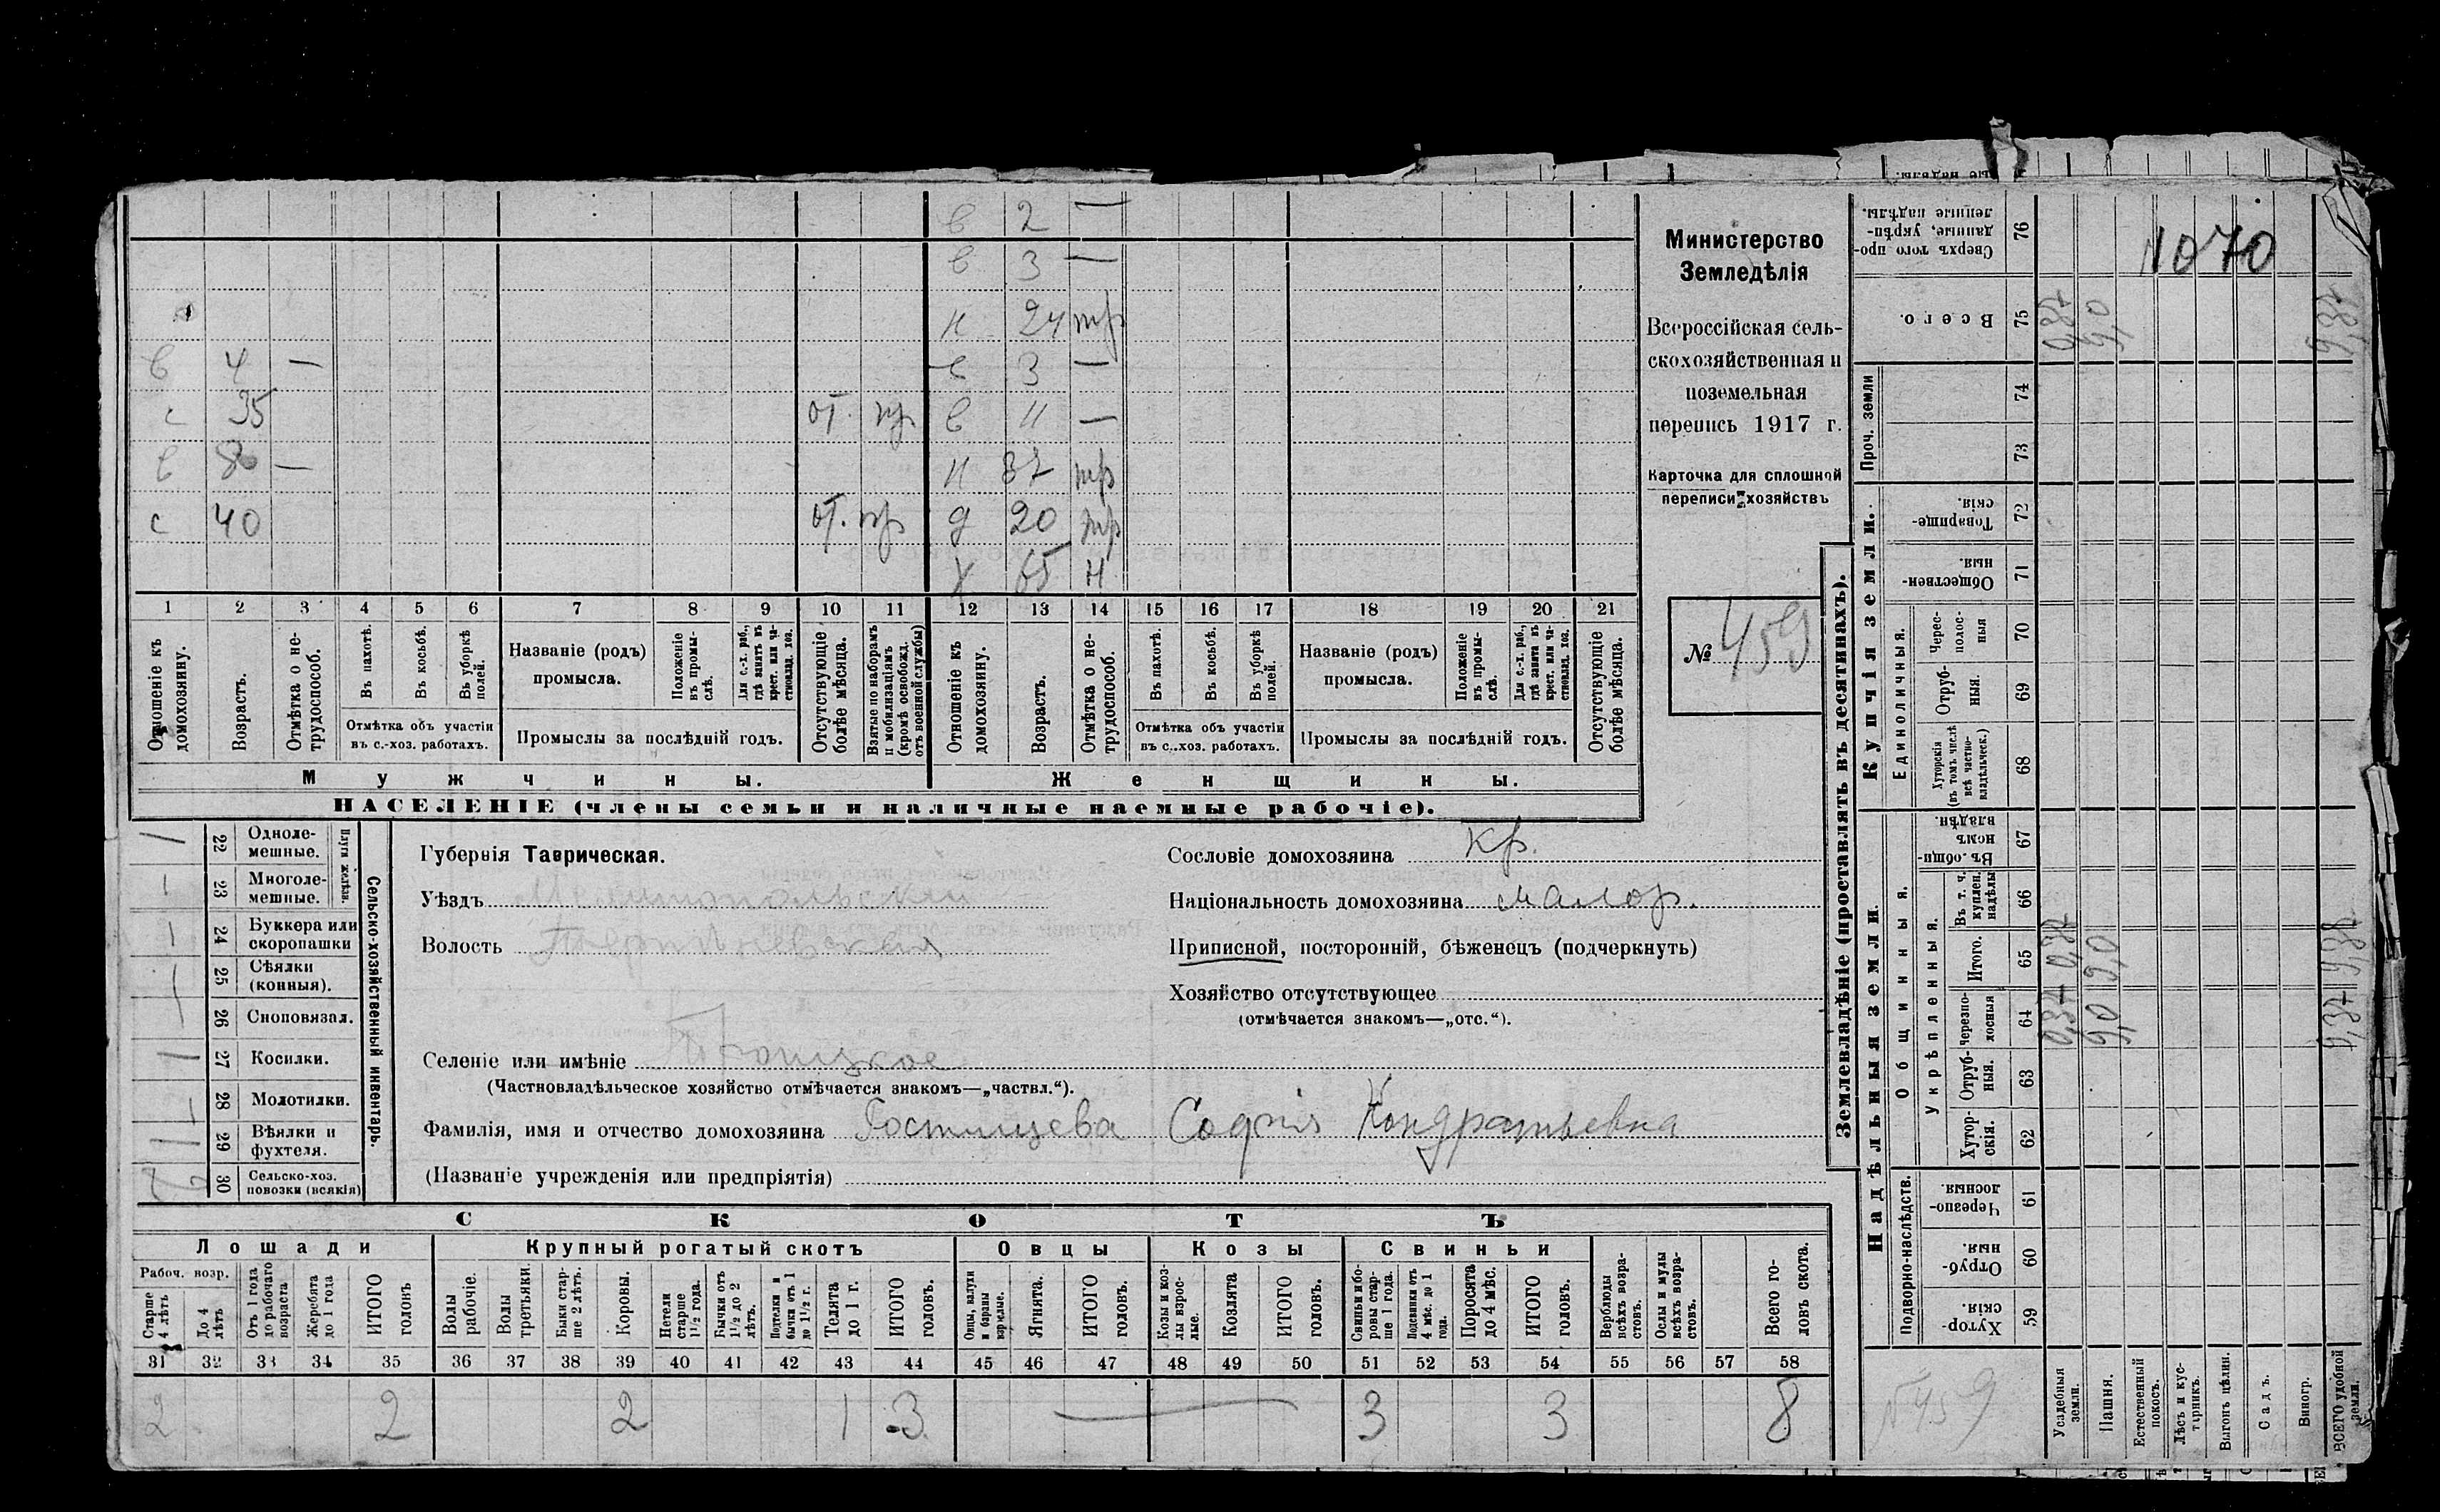 в 2 —
в 3 —
н 24 тр
в 4 — в 3 —
с 35 от. пр в 11 —
в 80 — н 37 тр
с 40 от. пр д 20 тр
х 65 н
1 2 3 4 5 6 7 8 9 10 11 12 13 14 15 16 17 18 19 20 21
Отношеніе къ домохозяину.
Возрастъ.
Отмѣтка о нетрудоспособ.
Въ пахотѣ.
Въ косьбѣ.
Въ уборкѣ полей.
Отмѣтка объ участіи
въ с.-хоз. работахъ.
Названіе (родъ)
промысла.
Положеніе въ промыслѣ.
Для с.-х. раб., гдѣ занятъ въ крест. или частновлад. хоз.
Промыслы за послѣдній годъ.
Отсутствующіе болѣе мѣсяца.
Взятые по наборамъ и мобилизаціямъ (кромѣ освобожд. отъ военной службы)
Отношеніе къ домохозяину.
Возрастъ.
Отмѣтка о нетрудоспособ.
Въ пахотѣ.
Въ косьбѣ.
Въ уборкѣ полей.
Отмѣтка объ участіи
въ с..хоз. работахъ.
Названіе (родъ)
промысла.
Положеніе въ промыслѣ.
Для с.-х. раб., гдѣ занята въ крест. или частновлад. хоз.
Промыслы за послѣдній годъ.
Отсутствующіе болѣе мѣсяца.
Мужчины. Женщины.
НАСЕЛЕНІЕ (члены семьи и наличные наемные рабочіе).
Министерство
Земледѣлія
Всероссійская сель-
скохозяйственная и
поземельная
перепись 1917 г.
Карточка для сплошной
переписи хозяйствъ
№ 459
22 Одноле-
мешные.
23 Многоле-
мешные.
Плуги желѣзн.
24 Буккера или
скоропашки
25 Сѣялки
(конныя).
26 Сноповязал.
27 Косилки.
28 Молотилки.
29 Вѣялки и
фухтеля.
30 Сельско-хоз.
повозки (всякія)
Сельско-хозяйственный инвентарь.
Губернія Таврическая.
Уѣздъ Мелитопольский
Волость
Селеніе или имѣніе Троицкое
(Частновладѣльческое хозяйство отмѣчается знакомъ—„частвл.“).
Фамилія, имя и отчество домохозяина Гостищева Софія Кондратьевна
(Названіе учрежденія или предпріятія)
Сословіе домохозяина кр.
Національность домохозяина малор.
Приписной, посторонній, бѣженецъ (подчеркнуть)
Хозяйство отсутствующее
(отмѣчается знакомъ—„отс.“).
СКОТЪ
Лошади Крупный рогатый скотъ Овцы Козы Свиньи
Рабоч. возр.
Старше 4 лѣтъ
До 4 лѣтъ
Отъ 1 года до рабочаго возраста
Жеребята до 1 года
ИТОГО головъ
Волы рабочіе.
Волы третьяки.
Быки старше 2 лѣтъ.
Коровы.
Нетели старше 1½ года.
Бычки отъ 1½ до 2 лѣтъ.
Подтелки и бычки отъ 1 до 1½ г.
Телята до 1 г.
ИТОГО головъ.
Овцы, валухи и бараны взрослые.
Ягнята.
ИТОГО головъ.
Козы и козлы взрослые.
Козлята
ИТОГО головъ.
Свиньи и боровы старше 1 года.
Подсвинки отъ 4 мѣс. до 1 года.
Поросята до 4 мѣс.
ИТОГО головъ.
Верблюды всѣхъ возрастовъ.
Ослы и мулы всѣхъ возрастовъ.
Всего головъ скота.
31 32 33 34 35 36 37 38 39 40 41 42 43 44 45 46 47 48 49 50 51 52 53 54 55 56 57 58
2 2 2 1 3 — 3 3 8
Землевладѣніе (проставлять въ десятинахъ).
Надѣльныя земли.
Купчія земли.
Проч. земли
Подворно-наслѣдств.
Общинныя.
Укрѣпленныя.
Единоличныя.
59 Хуторскія
60 Отрубныя
61 Черезполосныя.
62 Хуторскія.
63 Отрубныя.
64 Черезполосныя
65 Итого.
66 Въ т. ч. куплен. надѣлы
67 Въ общинномъ владѣн.
68 Хуторскія (въ томъ числѣ всѣ частновладѣльческ.)
69 Отрубныя.
70 Чересполосныя
71 Общественныя
72 Товарищескія.
73
74
75 Всего.
76 Сверхъ того проданные, укрѣпленные надѣлы.
1070
0,37 9,0 9,37
0,37 9,0 9,37
0,37 9,0 9,37
N 459
Усадебныя земли.
Пашня.
Естественный покосъ.
Лѣсъ и кустарникъ.
Выгонъ цѣлин.
Садъ.
Виногр.
ВСЕГО удобной земли.